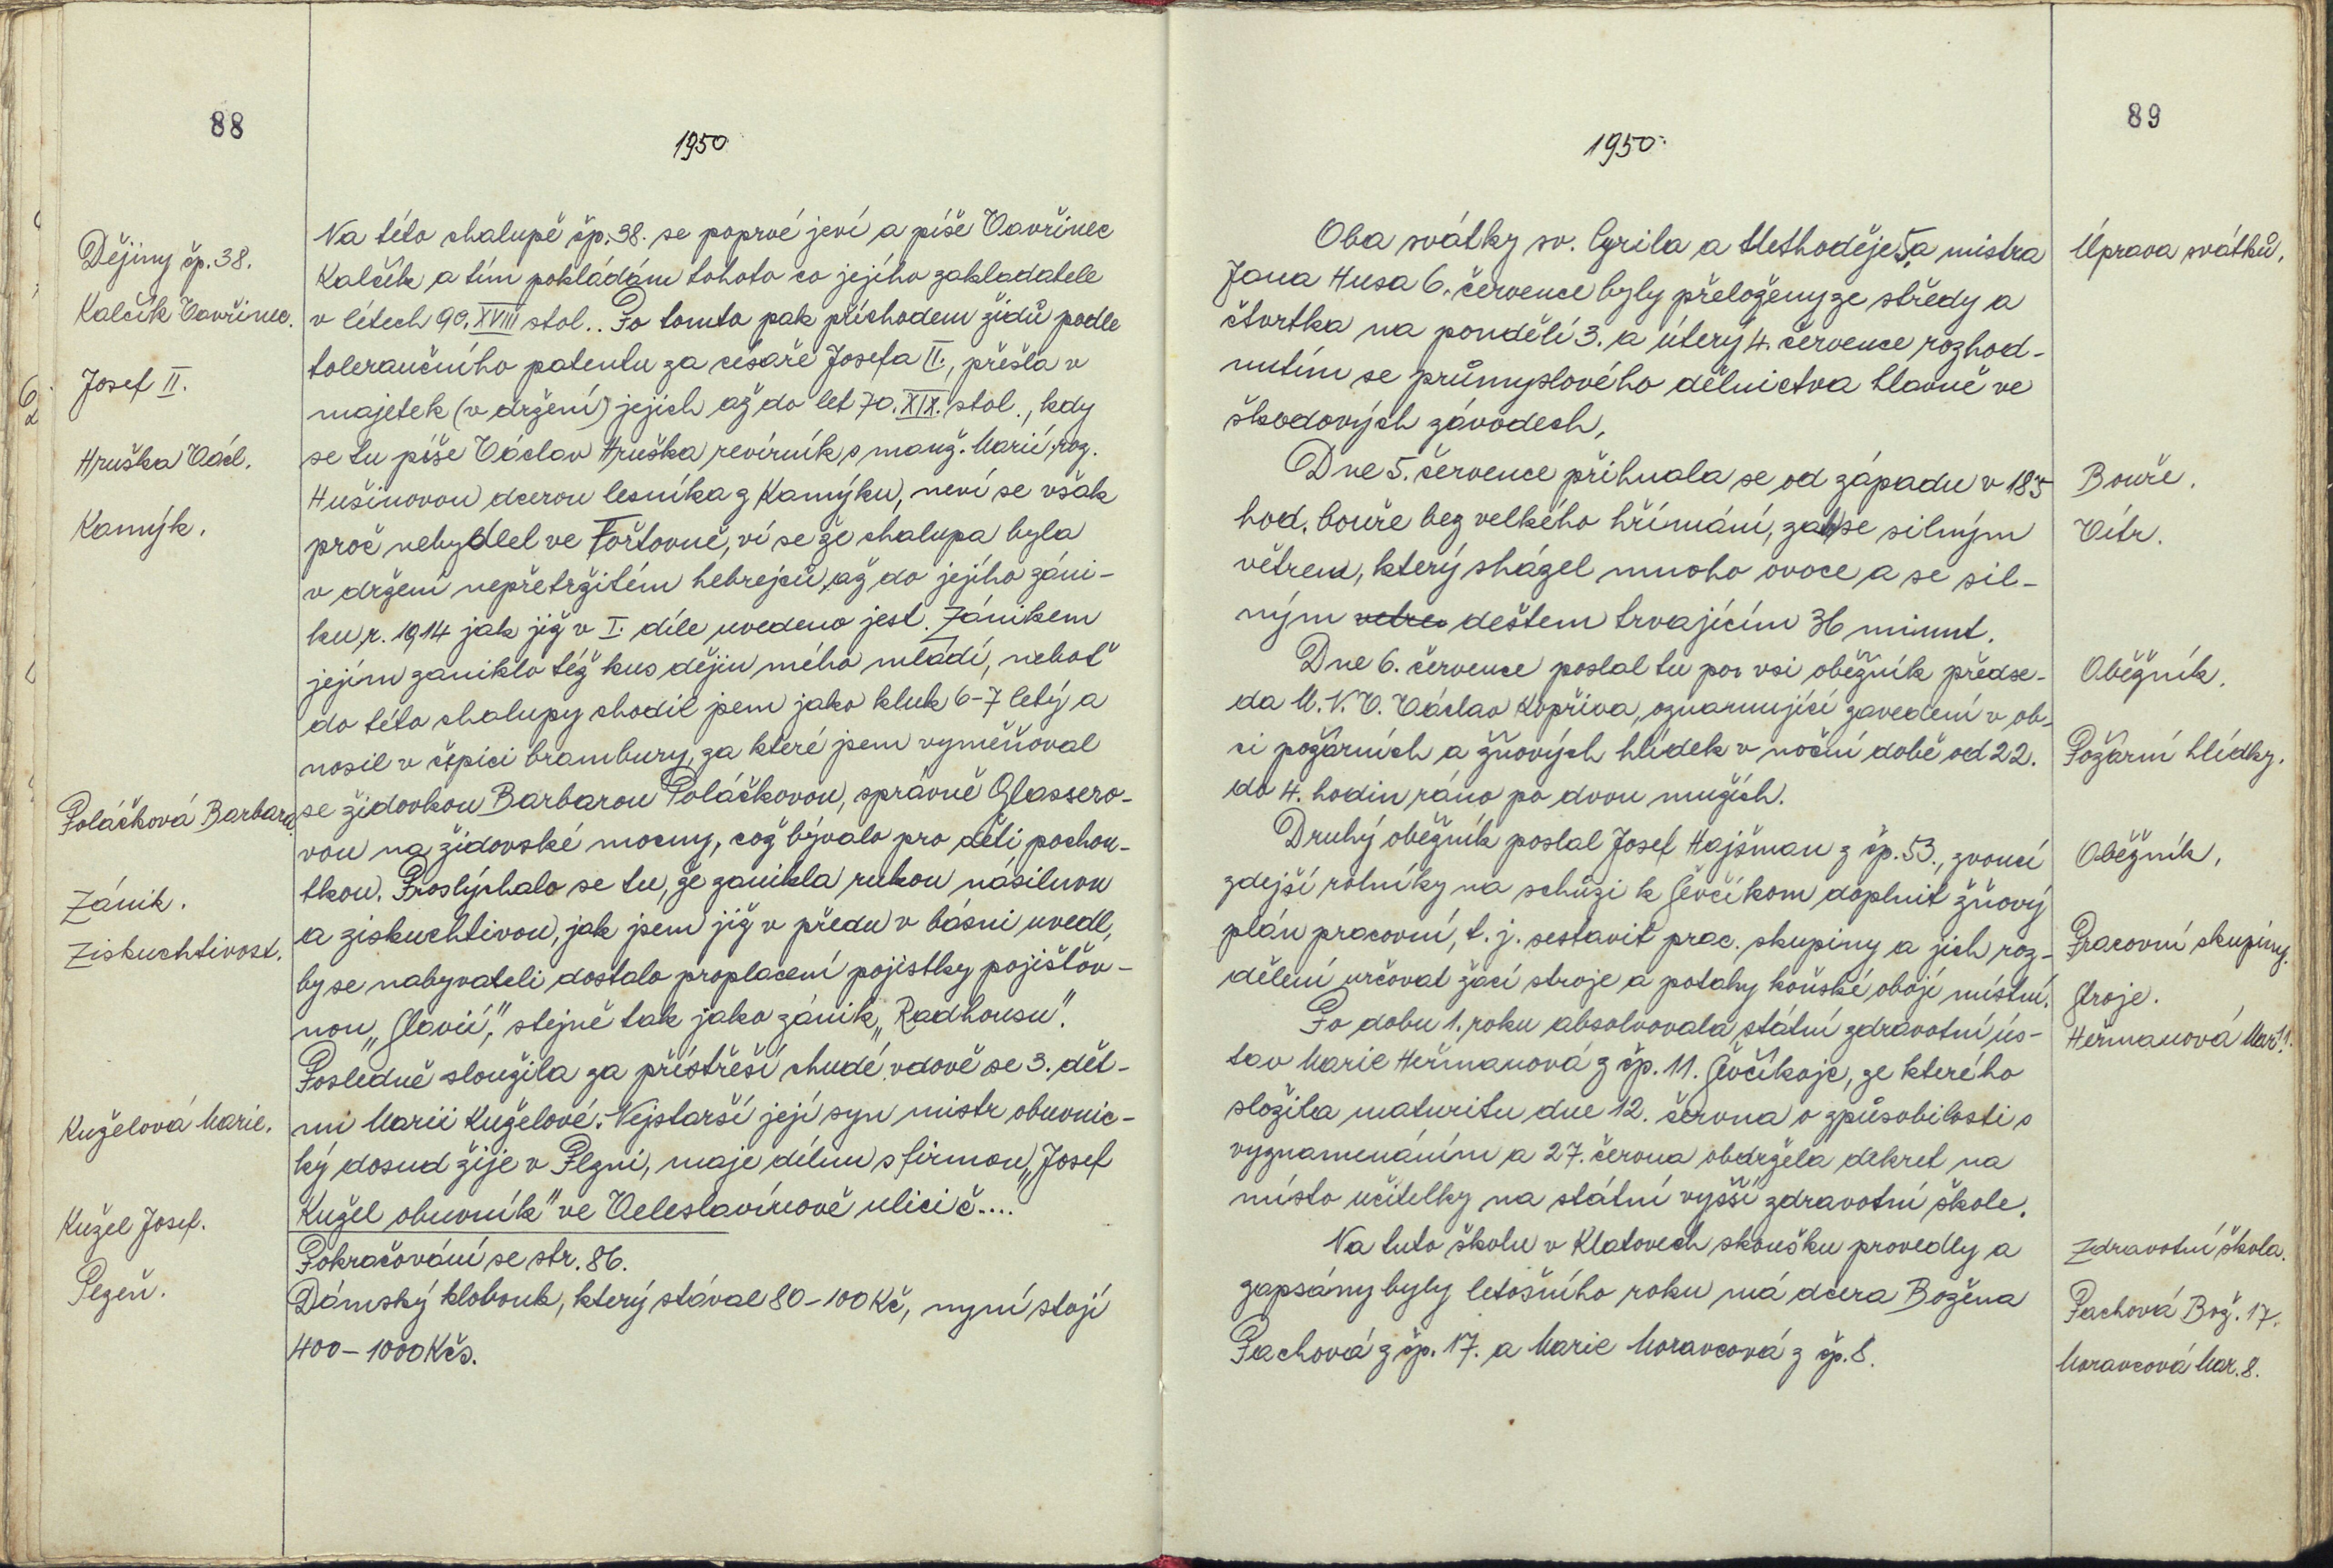 88
1950
Dějiny čp. 38.
Kalčík Vavřinec.
Josef II.
Hruška Václ.
Kamýk.
Poláčková Barbara.
Zánik.
Ziskuchtivost.
Kuželová Marie.
Kužel Josef.
Plzeň.
Na této chalupě čp. 38. se poprvé jeví a píše Vavřinec
Kalčík a tím pokládám tohoto co jejího zakladatele
v létech 90. XVIII stol.. Po tomto pak příchodem židů podle
tolerančního patentu za císaře Josefa II., přešla v
majetek (v držení) jejich až do let 70. XIX. stol., kdy
se tu píše Václav Hruška revírník s manž. Marií roz.
Hušinovou dcerou lesníka z Kamýku, neví se však
proč nebydlel ve Fořtovně, ví se že chalupa byla
v držení nepřetržitém hebrejců až do jejího záni-
ku, r. 1914 jak již v I. díle uvedeno jest. Zánikem
jejím zaniklo též kus dějin mého mládí, neboť
do této chalupy chodil jsem jako kluk 6-7 letý a
nosil v čepici brambury, za které jsem vyměňoval
se židovkou Barbarou Poláčkovou, správně Glassero-
vou na židovské mocny, což bývalo pro děti pochou-
tkou. Proslýchalo se tu, že zanikla rukou násilnou
a ziskuchtivou, jak jsem již v předu v básni uvedl,
by se nabyvateli dostalo proplacení pojistky pojišťov-
nou „Slavií," stejně tak jako zánik „Radhousu".
Posledně sloužila za přístřeší chudé vdově se 3. dět-
mi Marii Kuželové. Nejstarší její syn mistr obuvnic-
ký dosud žije v Plzni, maje dílnu s firmou „Josef
Kužel obuvník" ve Veleslavínově ulici č....
Pokračování se str. 86.
Dámský klobouk, který stával 80-100 Kč, nyní stojí
400-1000 Kčs.
89
1950.
Oba svátky sv. Cyrila a Methoděje 5. a mistra
Jana Husa 6. července byly přeloženy ze středy a
čtvrtka na pondělí 3. a úterý 4. července rozhod-
nutím se průmyslového dělnictva hlavně ve
škodových závodech,
Dne 5. července přihnala se od západu v 185
hod. bouře bez velkého hřímání, zato se silným
větrem, který sházel mnoho ovoce a se sil-
ným vetrem deštem trvajícím 36 minut.
Dne 6. července poslal tu po vsi oběžník předse-
da M. N. V. Václav Kopřiva, oznamující zavedení v ob-
ci požárních a žňových hlídek v noční době od 22.
do 4. hodin ráno po dvou mužích.
Druhý oběžník poslal Josef Hajšman z čp. 53., zvoucí
zdejší rolníky na schůzi k Ševčíkom doplnit žňový
plán pracovní, t. j. sestavit prac. skupiny a jich roz-
dělení určovat žací stroje a potahy koňské obojí místní.
Po dobu 1. roku absolvovala státní zdravotní ús-
tav Marie Heřmanová z čp. 11. Ševčíkojc, ze kterého
složila maturitu dne 12. června o způsobilosti s
vyznamenáním a 27. června obdržela dekret na
místo učitelky na státní vyšší zdravotní škole.
Na tuto školu v Klatovech skoušku provedly a
zapsány byly letošního roku má dcera Božena
Pachová z čp. 17. a Marie Moravcová z čp. 8.
Úprava svátků.
Bouře.
Vítr.
Oběžník.
Požární hlídky.
Oběžník.
Pracovní skupiny.
Stroje.
Heřmanová Mar. 11.
Zdravotní škola.
Pachová Bož. 17.
Moravcová Mar. 8.